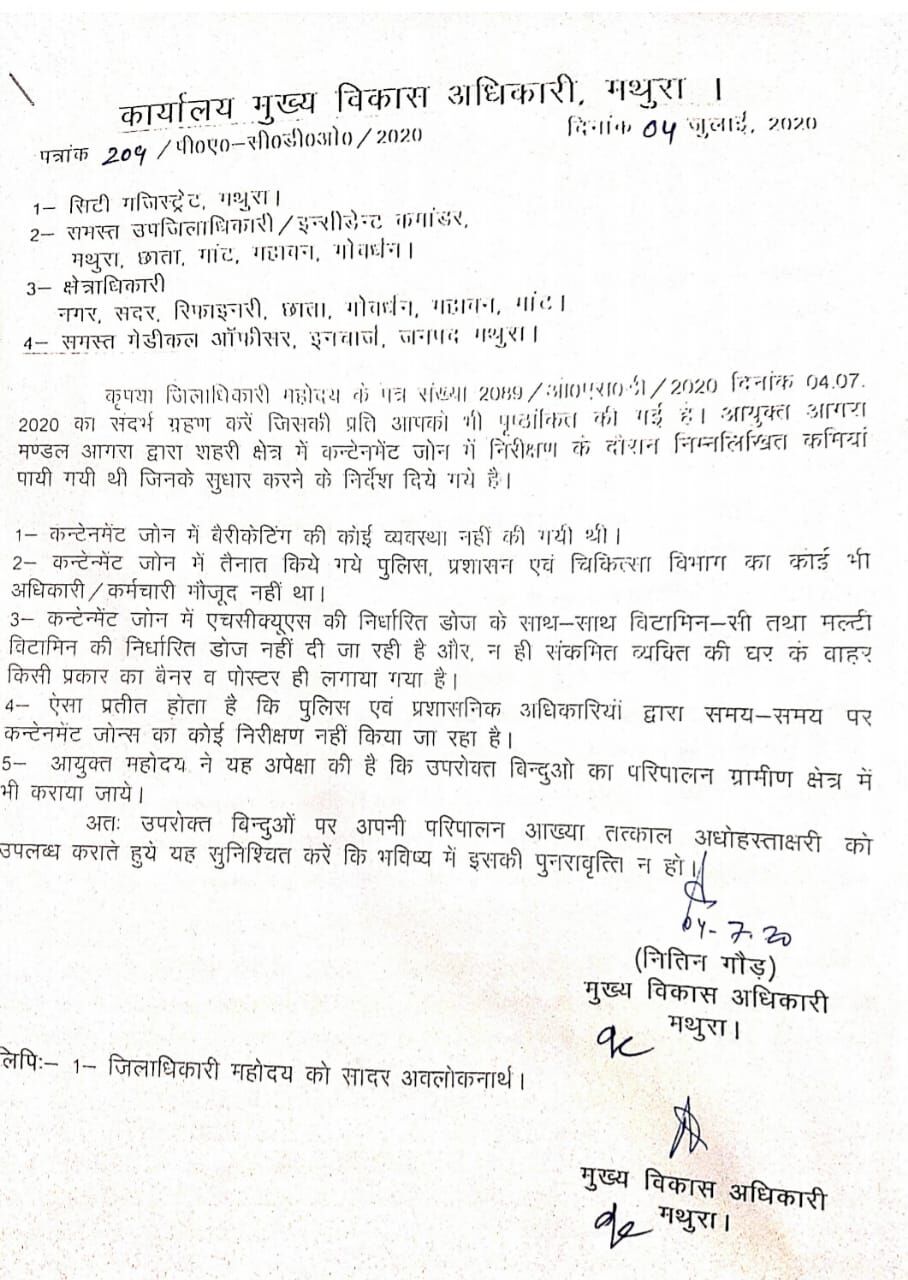 कार्यालय मुख्य विकास अधिकारी, मथुरा ।
पत्रांक 209 /पी०ए०-सी०डी०ओ०/2020 दिनांक 04 जुलाई, 2020
1- सिटी मजिस्ट्रेट, मथुरा।
2- समस्त उपजिलाधिकारी/इन्सीडेन्ट कमांडर,
मथुरा, छाता, मांट, महावन, गोवर्धन।
3- क्षेत्राधिकारी
नगर, सदर, रिफाइनरी, छाता, गोवर्धन, महावन, मांट।
4- समस्त मेडीकल ऑफीसर, इनचार्ज, जनपद मथुरा।
कृपया जिलाधिकारी महोदय के पत्र संख्या 2089/ओ०एस०डी/2020 दिनांक 04.07.
2020 का संदर्भ ग्रहण करें जिसकी प्रति आपको भी पृष्ठांकित की गई है। आयुक्त आगरा
मण्डल आगरा द्वारा शहरी क्षेत्र में कन्टेनमेंट जोन में निरीक्षण के दौरान निम्नलिखित कमियां
पायी गयी थी जिनके सुधार करने के निर्देश दिये गये है।
1- कन्टेनमेंट जोन में बैरीकेटिंग की कोई व्यवस्था नहीं की गयी थी।
2- कन्टेन्मेंट जोन में तैनात किये गये पुलिस, प्रशासन एवं चिकित्सा विभाग का कोई भी
अधिकारी/कर्मचारी मौजूद नहीं था।
3- कन्टेन्मेंट जोन में एचसीक्यूएस की निर्धारित डोज के साथ-साथ विटामिन-सी तथा मल्टी
विटामिन की निर्धारित डोज नहीं दी जा रही है और, न ही संकमित व्यक्ति की घर के वाहर
किसी प्रकार का बैनर व पोस्टर ही लगाया गया है।
4- ऐसा प्रतीत होता है कि पुलिस एवं प्रशासनिक अधिकारियों द्वारा समय-समय पर
कन्टेनमेंट जोन्स का कोई निरीक्षण नहीं किया जा रहा है।
5- आयुक्त महोदय ने यह अपेक्षा की है कि उपरोक्त बिन्दुओ का परिपालन ग्रामीण क्षेत्र में
भी कराया जाये।
अतः उपरोक्त बिन्दुओं पर अपनी परिपालन आख्या तत्काल अधोहस्ताक्षरी को
उपलब्ध कराते हुये यह सुनिश्चित करें कि भविष्य में इसकी पुनरावृत्ति न हो।
04-7.20
(नितिन गौड़)
मुख्य विकास अधिकारी
मथुरा।
लिपिः- 1- जिलाधिकारी महोदय को सादर अवलोकनार्थ।
मुख्य विकास अधिकारी
मथुरा।